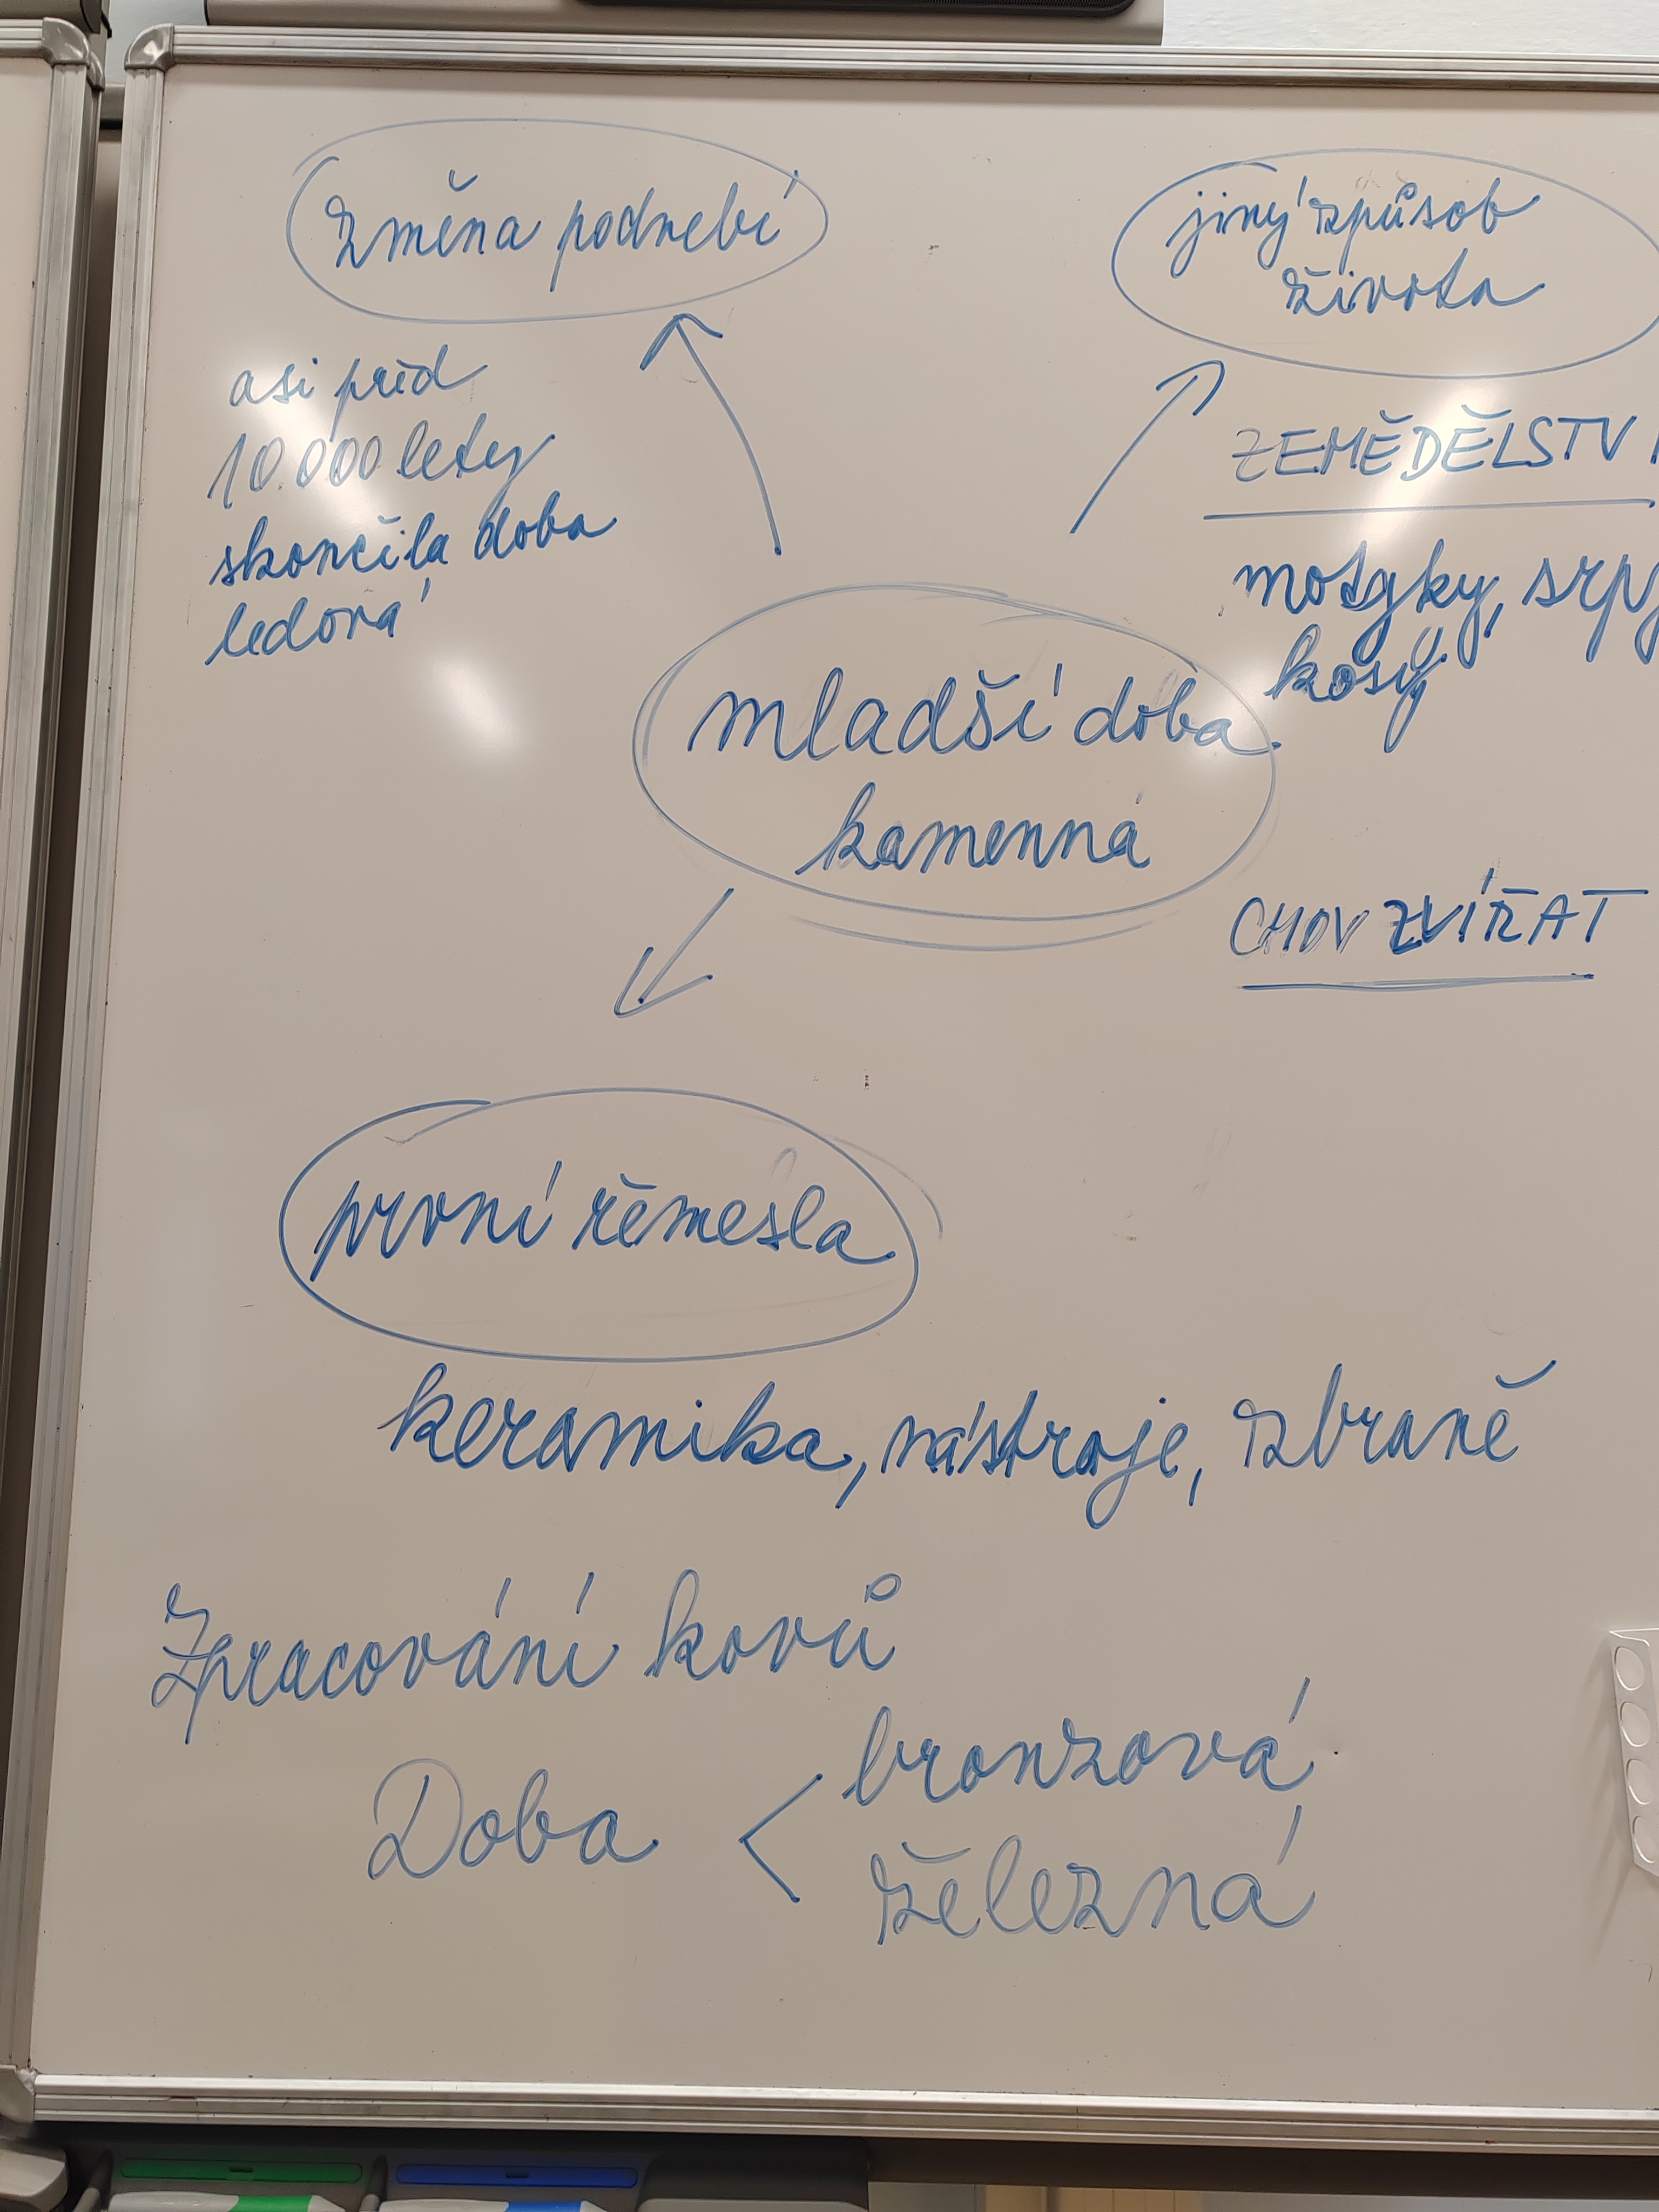 změna podnebí
asi před
10.000 lety
skončila doba
ledová
jiný způsob
života
ZEMĚDĚLSTVÍ
motyky, srpy
kosy
mladší doba
kamenná
CHOV ZVÍŘAT
první řemesla
keramika, nástroje, zbraně
Zpracování kovů
Doba < bronzová
železná